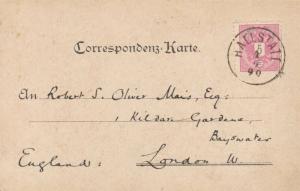 HALLSTATT
5
90
Correspondenz-Karte.
An Robert S. Oliver Mais, Esq:
1 Kildare Gardens,
Bayswater
England: London W.